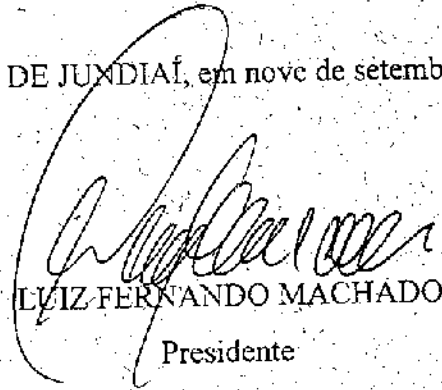 DE JUNDIAÍ, em nove de setemb
LUIZ FERNANDO MACHADO
Presidente